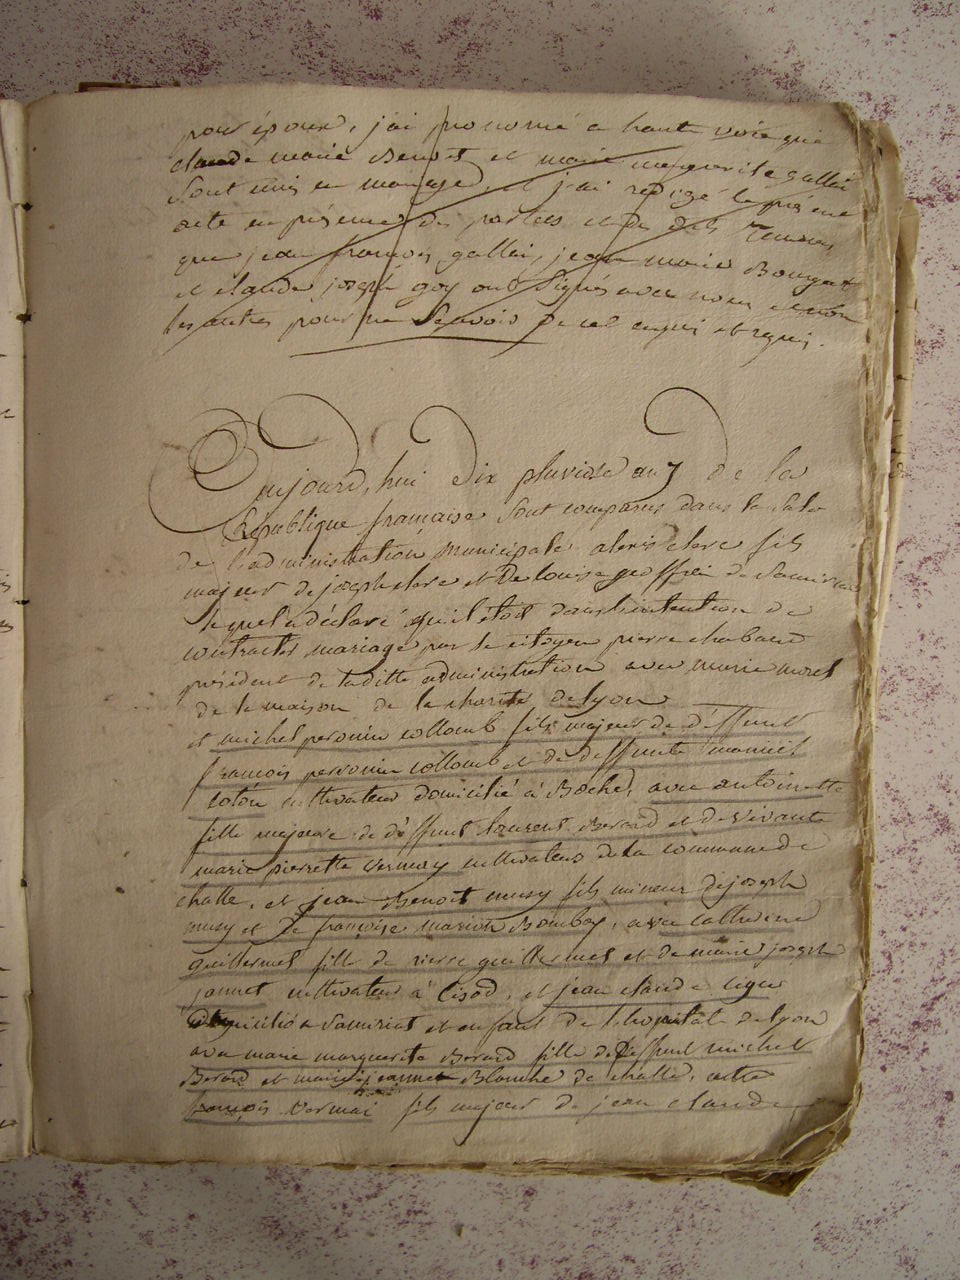 pour époux, j'ai prononcé a haute voix que
claude marie Benoit et marie marguerite gallei
Sont unis en mariage, et j'ai redigé le présent
acte en présence des parties et de dits Temoins
que jean françois gallei, jean marie Bourgat
et claude joseph goy ont Signés avec nous et non
les autres pour ne Sçavoir de cel enquis et requis.
Aujourd,hui dix pluviose an 7 de la
République française Sont comparus dans la Salle
de l'administration municipale alexis clerc fils
majeur de joseph clerc et De louise geoffrai de Samiriat
lequel a déclaré qu'il étoit dans l'intention de
contracter mariage par le citoyen pierre chabaud
président de laditte administration avec marie morel
de la maison de la charité de lyon
et michel peronin collomb fils majeur de déffunt
françois perronin collomb et de deffunte
cultivateur domicilié à Boches, avec antoinette
fille majeure de déffunt laurent Berard et de vivante
marie pierrette vermay cultivateur de la commune de
challe, et jean Benoit musy fils mineur de joseph
musy et de françoise marion Bombay, avec catherine
guillermet fille de pierre guillermet et de marie joseph
jannet cultivateur à Cisod, et jean claude
domicilié a Samiriat et enfant de l'hopital de lyon
avec marie marguerite Berard fille de deffunt michel
Berard et marie jeannet Blanche de challe, et
françois vermai fils majeur de jean claude